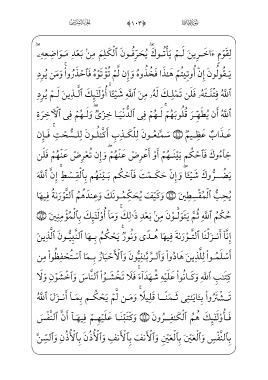 لِقَوْمٍ ءَاخَرِينَ لَمْ يَأْتُوكَ يُحَرِّفُونَ ٱلْكَلِمَ مِنۢ بَعْدِ مَوَاضِعِهِۦ
يَقُولُونَ إِنْ أُوتِيتُمْ هَٰذَا فَخُذُوهُ وَإِن لَّمْ تُؤْتَوْهُ فَٱحْذَرُوا۟ وَمَن يُرِدِ
ٱللَّهُ فِتْنَتَهُۥ فَلَن تَمْلِكَ لَهُۥ مِنَ ٱللَّهِ شَيْـًٔا أُو۟لَٰٓئِكَ ٱلَّذِينَ لَمْ يُرِدِ
ٱللَّهُ أَن يُطَهِّرَ قُلُوبَهُمْ لَهُمْ فِى ٱلدُّنْيَا خِزْىٌ وَلَهُمْ فِى ٱلْءَاخِرَةِ
عَذَابٌ عَظِيمٌ ۝ سَمَّٰعُونَ لِلْكَذِبِ أَكَّٰلُونَ لِلسُّحْتِ فَإِن
جَآءُوكَ فَٱحْكُم بَيْنَهُمْ أَوْ أَعْرِضْ عَنْهُمْ وَإِن تُعْرِضْ عَنْهُمْ فَلَن
يَضُرُّوكَ شَيْـًٔا وَإِنْ حَكَمْتَ فَٱحْكُم بَيْنَهُم بِٱلْقِسْطِ إِنَّ ٱللَّهَ
يُحِبُّ ٱلْمُقْسِطِينَ ۝ وَكَيْفَ يُحَكِّمُونَكَ وَعِندَهُمُ ٱلتَّوْرَىٰةُ فِيهَا
حُكْمُ ٱللَّهِ ثُمَّ يَتَوَلَّوْنَ مِنۢ بَعْدِ ذَٰلِكَ وَمَآ أُو۟لَٰٓئِكَ بِٱلْمُؤْمِنِينَ ۝
إِنَّآ أَنزَلْنَا ٱلتَّوْرَىٰةَ فِيهَا هُدًى وَنُورٌ يَحْكُمُ بِهَا ٱلنَّبِيُّونَ ٱلَّذِينَ
أَسْلَمُوا۟ لِلَّذِينَ هَادُوا۟ وَٱلرَّبَّٰنِيُّونَ وَٱلْأَحْبَارُ بِمَا ٱسْتُحْفِظُوا۟ مِن
كِتَٰبِ ٱللَّهِ وَكَانُوا۟ عَلَيْهِ شُهَدَآءَ فَلَا تَخْشَوُا۟ ٱلنَّاسَ وَٱخْشَوْنِ وَلَا
تَشْتَرُوا۟ بِـَٔايَٰتِى ثَمَنًا قَلِيلًا وَمَن لَّمْ يَحْكُم بِمَآ أَنزَلَ ٱللَّهُ
فَأُو۟لَٰٓئِكَ هُمُ ٱلْكَٰفِرُونَ ۝ وَكَتَبْنَا عَلَيْهِمْ فِيهَآ أَنَّ ٱلنَّفْسَ
بِٱلنَّفْسِ وَٱلْعَيْنَ بِٱلْعَيْنِ وَٱلْأَنفَ بِٱلْأَنفِ وَٱلْأُذُنَ بِٱلْأُذُنِ وَٱلسِّنَّ